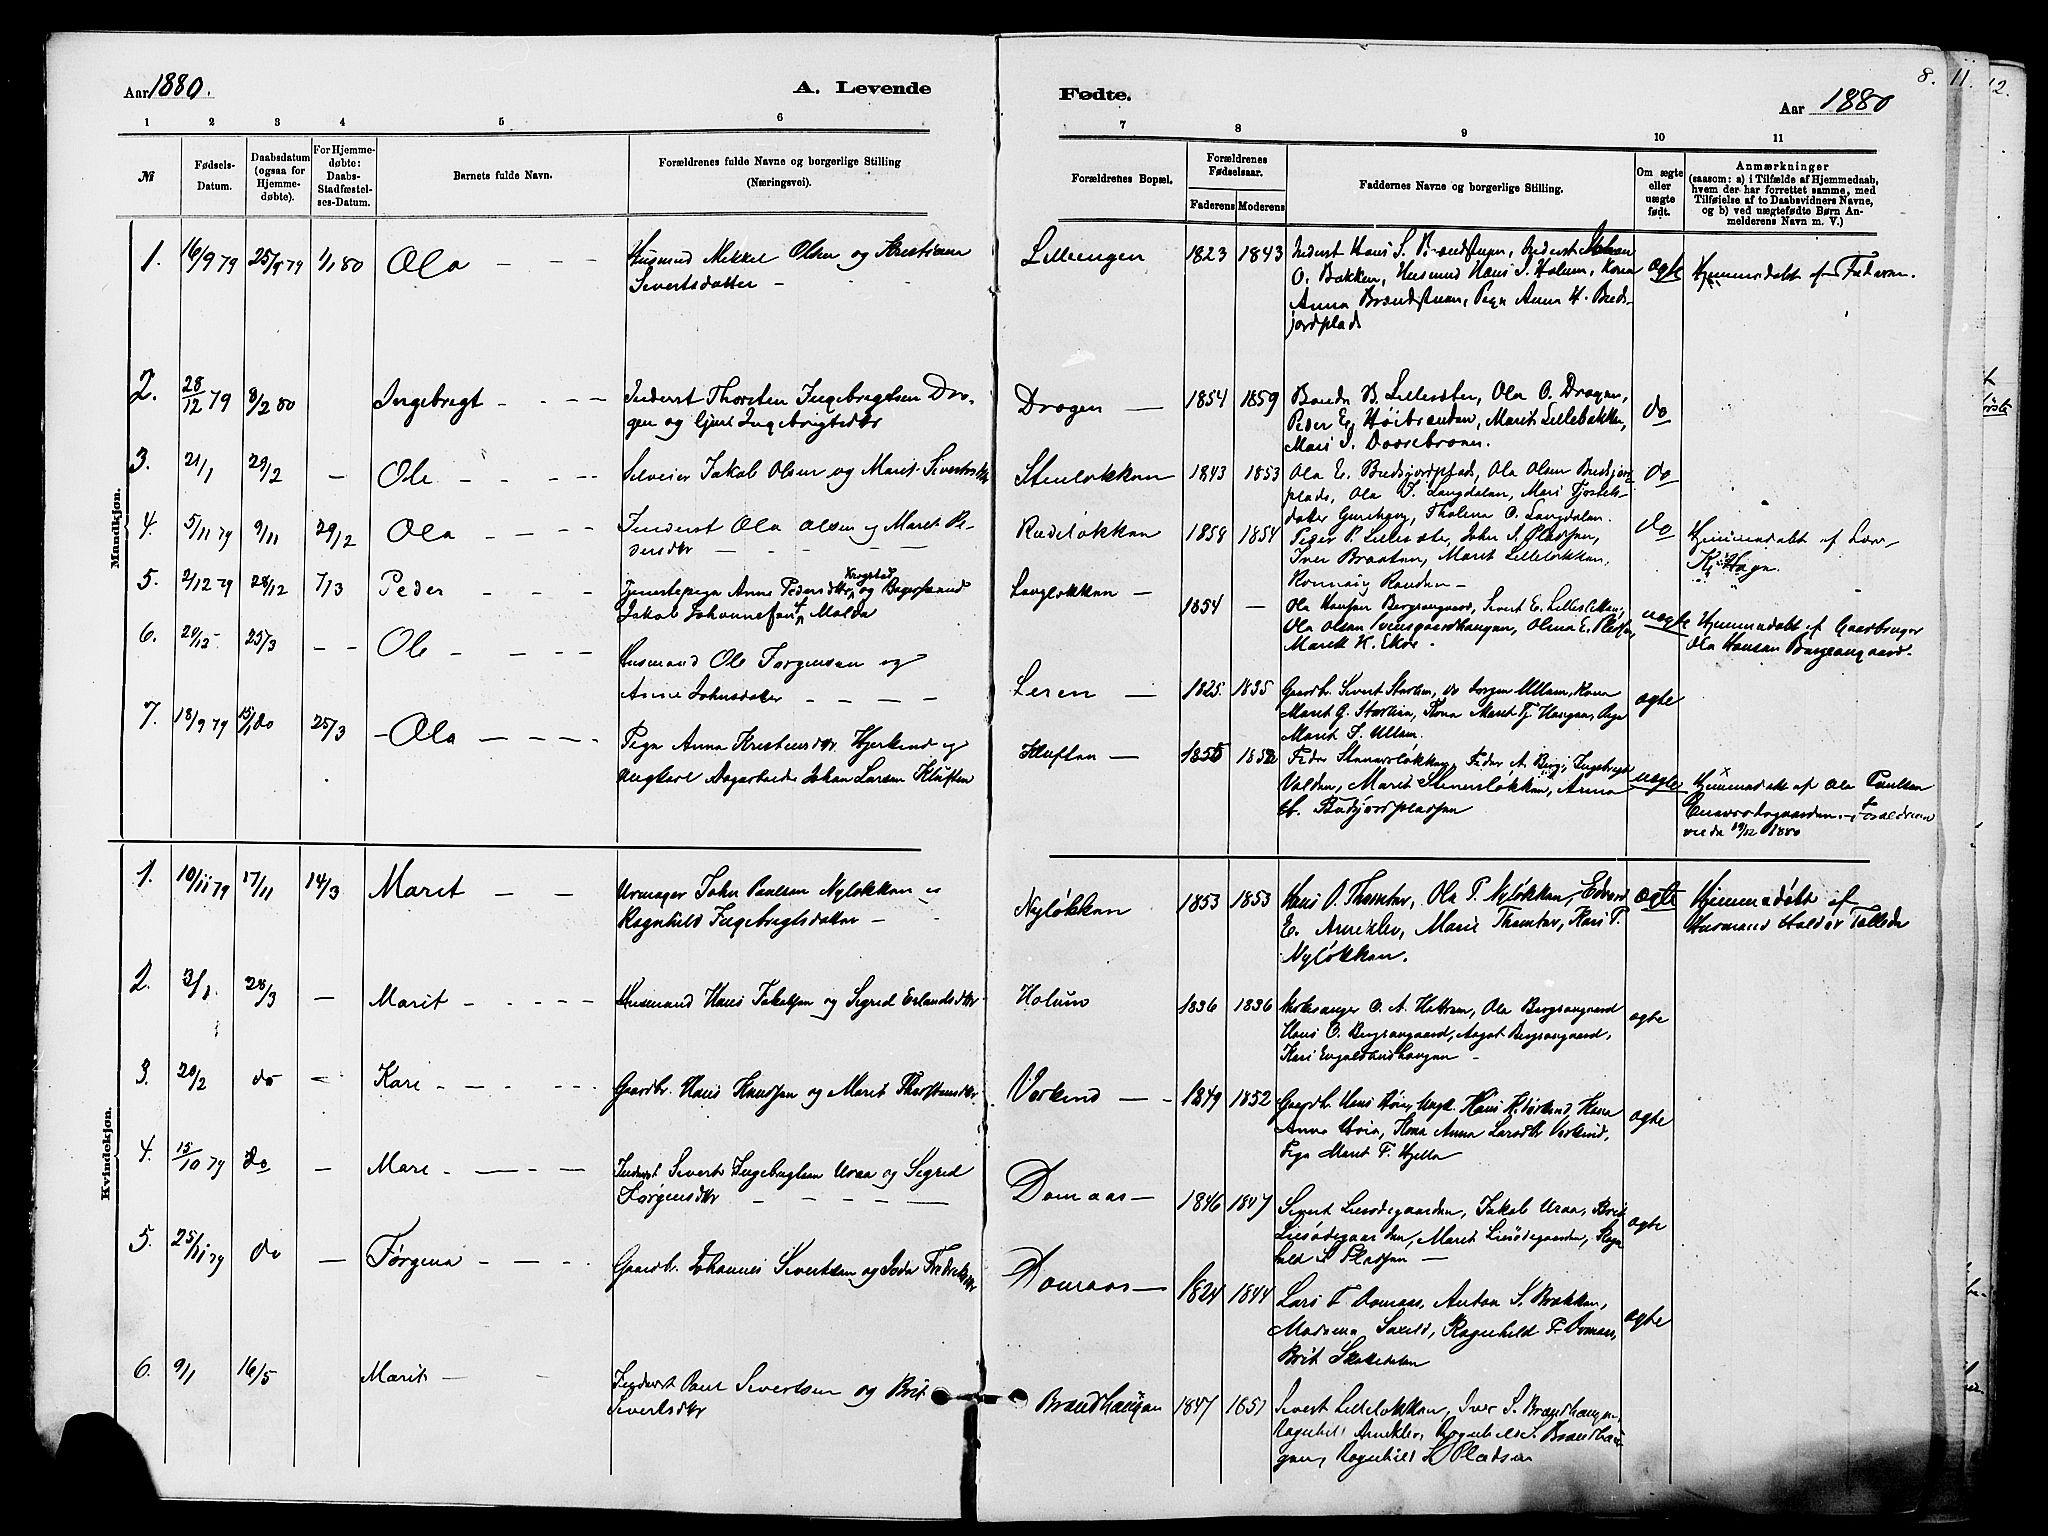 Aar 1880.
A. Levende
Fødte.
Aar 1880
8. 11. 12.
1 2 3 4 5 6
7 8 9 10 11
№
Fødsels-
Datum.
Daabsdatum
(ogsaa for
Hjemme-
døbte).
For Hjemme-
døbte:
Daabs-
Stadfæstel-
ses-Datum.
Barnets fulde Navn.
Forældrenes fulde Navne og borgerlige Stilling
(Næringsvei).
Forældrenes Bopæl.
Forældrenes
Fødselsaar.
Faderens Moderens
Faddernes Navne og borgerlige Stilling.
Om ægte
eller
uægte
født.
Anmærkninger
(saasom: a) i Tilfælde af Hjemmedaab,
hvem der har forrettet samme, med
Tilføielse af to Daabsvidners Navne,
og b) ved uægtefødte Børn An-
melderens Navn m. V.)
Mandkjøn.
1. 16/9 79 25/9 79 1/1 80 Ola
Husmand Mikkel Olsen og Kristianne
Sivertsdatter
Lilleengen 1823 1843
Inderst Hans S. Brændstuen, Inderst Johan
O. Bakken, Husmand Hans S. Holum, Kona
Anna Brændstuen, Pige Anna H. Breds-
jordplads
ægte
Hjemmedøbt af Faderen.
2. 28/12 79 8/2 80 Ingebregt
Inderst Thorsten Ingebregtsen Dra-
gen og Gjertrud Ingebrigtsdtr
Dragen 1854 1859
B. Lillesæter, Ola O. Dragen,
Peder E. Høibrenden, Marit Lillebakken,
Mari I.
do
3. 21/1 29/2 - Ole
Selveier Jakob Olsen og Marit Sivertsdtr
Stenløkken 1843 1853
Ola E. Bredsjordplads, Ola Olsen Bredsjord-
plads, Ola T. Langdalen, Mari Tjostels-
datter, Thalena O. Langdalen.
do
4. 5/11 79 9/11 29/2 Ola
Inderst Ola Olsen og Marit Pe-
dersdtr
Rudiløkken 1858 1854
Peder P. Lillesæter, John S. Pladsen,
Iver Braaten, Marit Lilleløkken,
Rønnaug Randen
do
Hjemmedøbt af Lær.
K. Hage.
5. 2/12 79 28/12 7/3 Peder
Tjenestepige Anne Pedersdtr Krogstad og Bagersvend
Jakob Johannesen f. Molde
Langløkken 1854 -
Ola Hansen Bergsengaard, Sivert E. Lillesletten,
Ola Olsen, Olina E. Pladsen,
Marit K. Ekre.
uægte
Hjemmedøbt af Gaardbruger
Ola Hansen Bergsengaard.
6. 20/12 25/3 - - Ole
Husmand Ole Jørgensen og
Anne Johnsdatter
Leren 1825. 1835
Gaardbr. Sivert Stølen, do Jørgen Ullam, Kona
Marit G. Stølen, Kona Marit Tj. Haugen, Pige
Marit S. Ullam.
ægte
7. 18/9 79 15/1 do 25/3 Ola
Pige Anna Kristensdtr. Hjerkind og
Ungkarl Johan Larsen Kluften
Kluften 1855 1852
Peder Stenersløkken, Peder A. Berg, Ingebregt
Volden, Marit Stenersløkken, Anna
Ch. Bredsjordpladsen
uægte
Hjemmedøbt af Ola Paulsen
Forældrene
viede 19/12 1880
Kvindekjøn.
1. 10/11 79 17/11 14/3 Marit
Urmager John Paulsen Nyløkken og
Ragnhild Ingebregtsdatter
Nyløkken 1853 1853
Hans O. Thomter, Ola P. Nyløkken, Edvard
E. Arneklev, Marie Thomter, Kari P.
Nyløkken.
ægte
Hjemmedøbt af
Husmand Haldor Tallede
2. 3/1. 28/3 - Marit
Husmand Hans Jakobsen og Sigrid Erlandsdtr
Holum 1836 1836
Kirkesanger O. A. Hattrem, Ola Bergseengaard
Hans O. Bergseengaard, Aagot Bergseengaard,
Kari
ægte
3. 20/2 do - Kari
Gaardbr. Hans Knudsen og Marit Thorstensdtr
Vorkind 1849 1852
Gaardbr. Hans Hvie, Ungk. Hans K. Vorkind, Kona
Anna Hvie, Kona Anna Larsdtr Vorkind,
Pige Marit P. Hjelle
ægte
4. 15/10 79 do - Mari
Inderst Sivert Ingebregtsen Uraa og Sigrid
Jørgensdtr
Domaas 1846 1847
Sivert Liesødegaarden, Jakob Uraa, Brit
Liesødegaarden, Marit Liesødegaarden, Ragn-
hild S. Pladsen
ægte
5. 25/11 79 do - Jørgina
Gaardbr. Johannes Sivertsen og Fredriksdtr
Domaas 1824 1844
Lars T. Domaas, Anton S. Brækken,
Madame, Ragnhild P. Domaas,
Brit Skakedalen
ægte
6. 9/1 16/5 Marit
Inderst Paul Sivertsen og Brit
Sivertsdtr
Brændhaugen 1847 1851
Sivert Lilleløkken, Iver S. Brændhaugen,
Ragnhild Arneklev, Ragnhild S. Brændhau-
gen, Ragnhild Pladsen